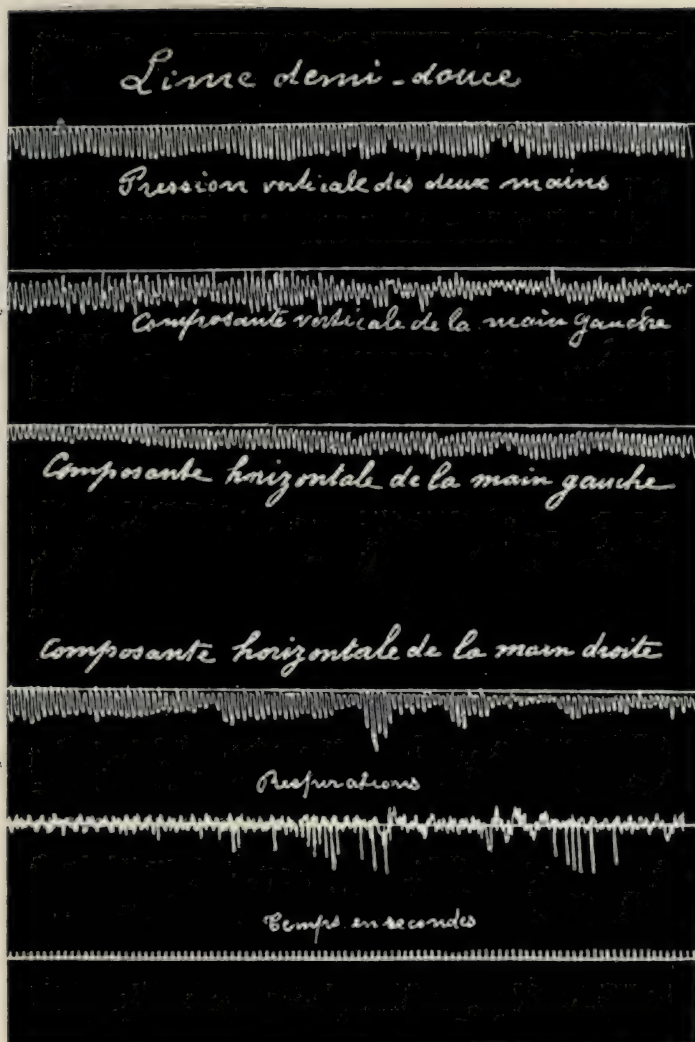 Lime demi-douce
Pression verticale des deux mains
Composante verticale de la main gauche
Composante horizontale de la main gauche
Composante horizontale de la main droite
Respirations
Temps en secondes